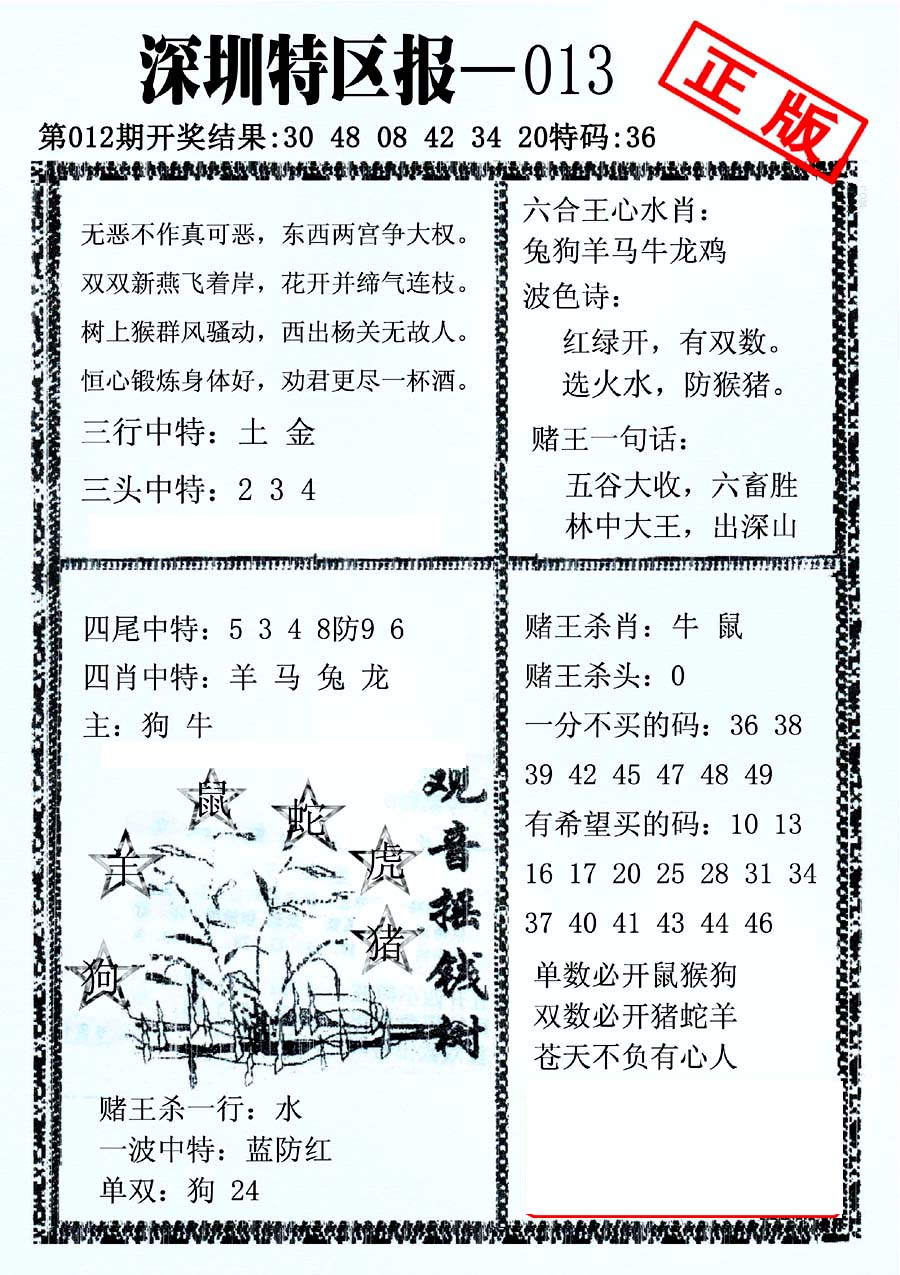 深圳特区报—013
正版
第012期开奖结果:30 48 08 42 34 20特码:36
无恶不作真可恶，东西两宫争大权。
双双新燕飞着岸，花开并缔气连枝。
树上猴群风骚动，西出杨关无故人。
恒心锻炼身体好，劝君更尽一杯酒。
三行中特：土 金
三头中特：2 3 4
六合王心水肖：
兔狗羊马牛龙鸡
波色诗：
红绿开，有双数。
选火水，防猴猪。
赌王一句话：
五谷大收，六畜胜
林中大王，出深山
四尾中特：5 3 4 8防9 6
四肖中特：羊 马 兔 龙
主：狗 牛
鼠
蛇
羊
虎
猪
狗
观音摇钱树
赌王杀一行：水
一波中特：蓝防红
单双：狗 24
赌王杀肖：牛 鼠
赌王杀头：0
一分不买的码：36 38
39 42 45 47 48 49
有希望买的码：10 13
16 17 20 25 28 31 34
37 40 41 43 44 46
单数必开鼠猴狗
双数必开猪蛇羊
苍天不负有心人